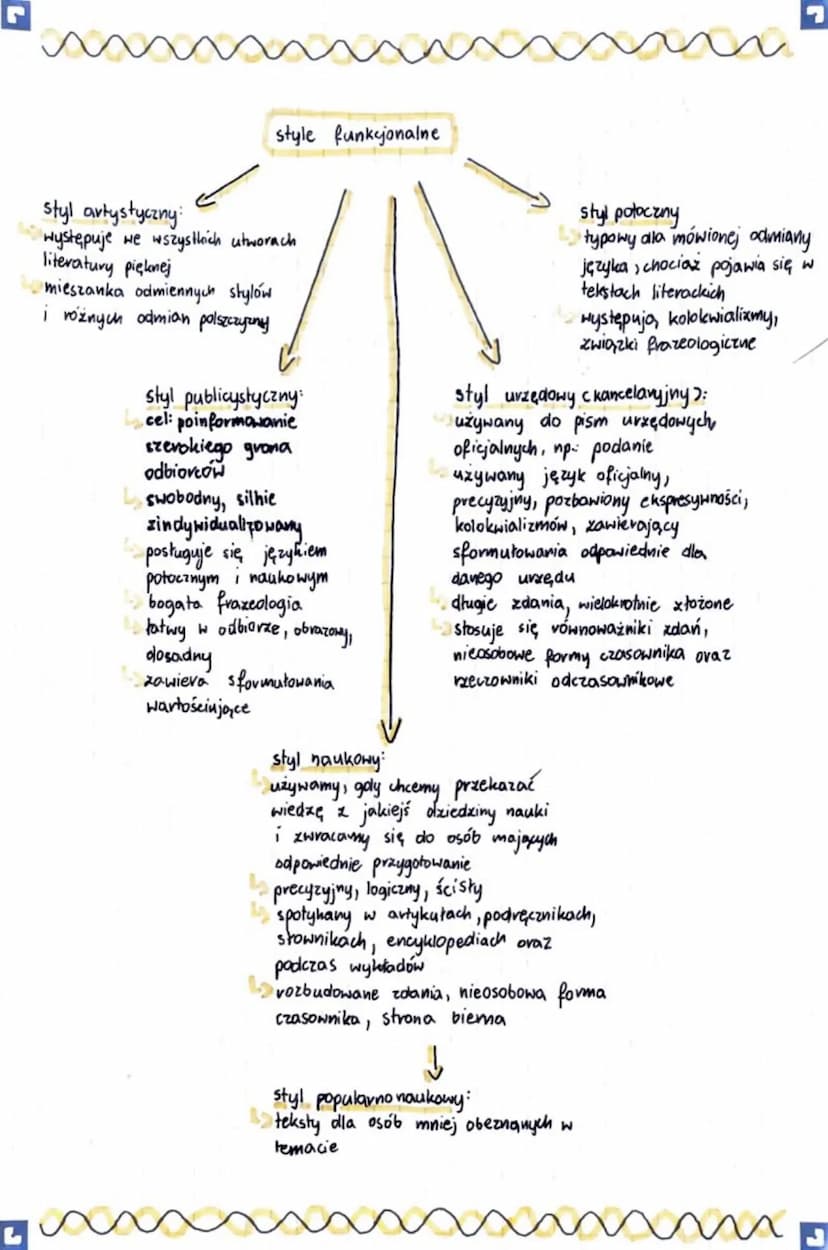 style funkcjonalne
styl artystyczny:
występuje we wszystkich utworach
literatury pięknej
mieszanka odmiennych stylów
i różnych odmian polszczyzny
styl potoczny
typowy dla mówionej odmiany
języka, chociaż pojawia się w
tekstach literackich
występują kolokwializmy,
związki frazeologiczne
styl publicystyczny:
cel: poinformowanie
szerokiego grona
odbiorców
swobodny, silnie
zindywidualizowany
posługuje się językiem
potocznym i naukowym
bogata frazeologia
łatwy w odbiorze, obrazowy,
dosadny
zawiera sformułowania
wartościujące
styl urzędowy (kancelaryjny):
używany do pism urzędowych,
oficjalnych, np.: podanie
używany język oficjalny,
precyzyjny, pozbawiony ekspresywności,
kolokwializmów, zawierający
sformułowania odpowiednie dla
danego urzędu
długie zdania, wielokrotnie złożone
stosuje się równoważniki zdań,
nieosobowe formy czasownika oraz
rzeczowniki odczasownikowe
styl naukowy:
używamy, gdy chcemy przekazać
wiedzę z jakiejś dziedziny nauki
i zwracamy się do osób mających
odpowiednie przygotowanie
precyzyjny, logiczny, ścisły
spotykany w artykułach, podręcznikach,
słownikach, encyklopediach oraz
podczas wykładów
rozbudowane zdania, nieosobowa forma
czasownika, strona bierna
styl popularnonaukowy:
teksty dla osób mniej obeznanych w
temacie